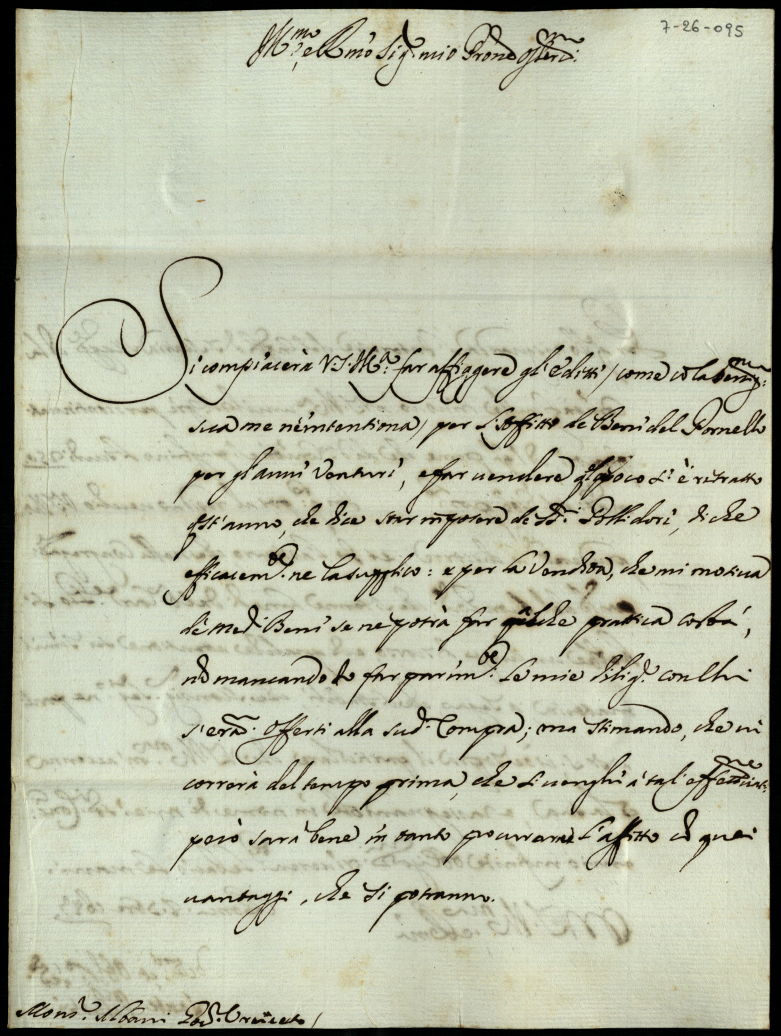 7-26-095
Ill.mo e R.mo Sig.r mio Pron Oss.mo
Si compiacerà V.S. Ill.ma far affiggere gl'editti, come co la
sua me n'intentiona, per l'affitto de Beni del Pornello
per gl'anni Venturi, e far vendere quel poco s'è ritratto
quest'anno, che dice star in potere de SS.ri Pollidori, di che
efficacem.te ne la supplico: e per la Vendita, che mi motiva
de med.i Beni se ne potrà far qualche prattica costà,
non mancando far parim.te le mie dilig.e con chi
s'era offerti alla sud.a Compra; ma stimando, che vi
correrà del tempo prima, che si venghi à tal
però sarà bene in tanto procurarne l'affitto con quei
vantaggi, che si potranno.
Mons.r Albani